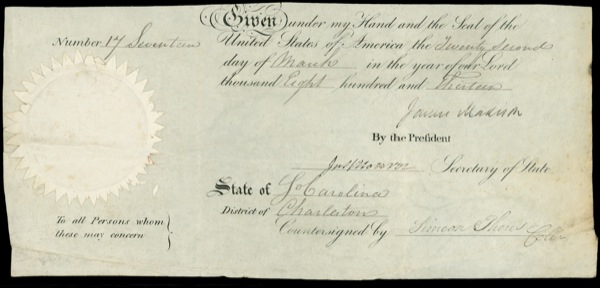 Given under my Hand and the Seal of the
Number 17 Seventeen
United States of America the Twenty Second
day of March in the year of our Lord
thousand Eight hundred and Thirteen
James Madison
By the President
Secretary of State
State of So Carolina
District of Charleston
Countersigned by Simeon
To all Persons whom
these may concern